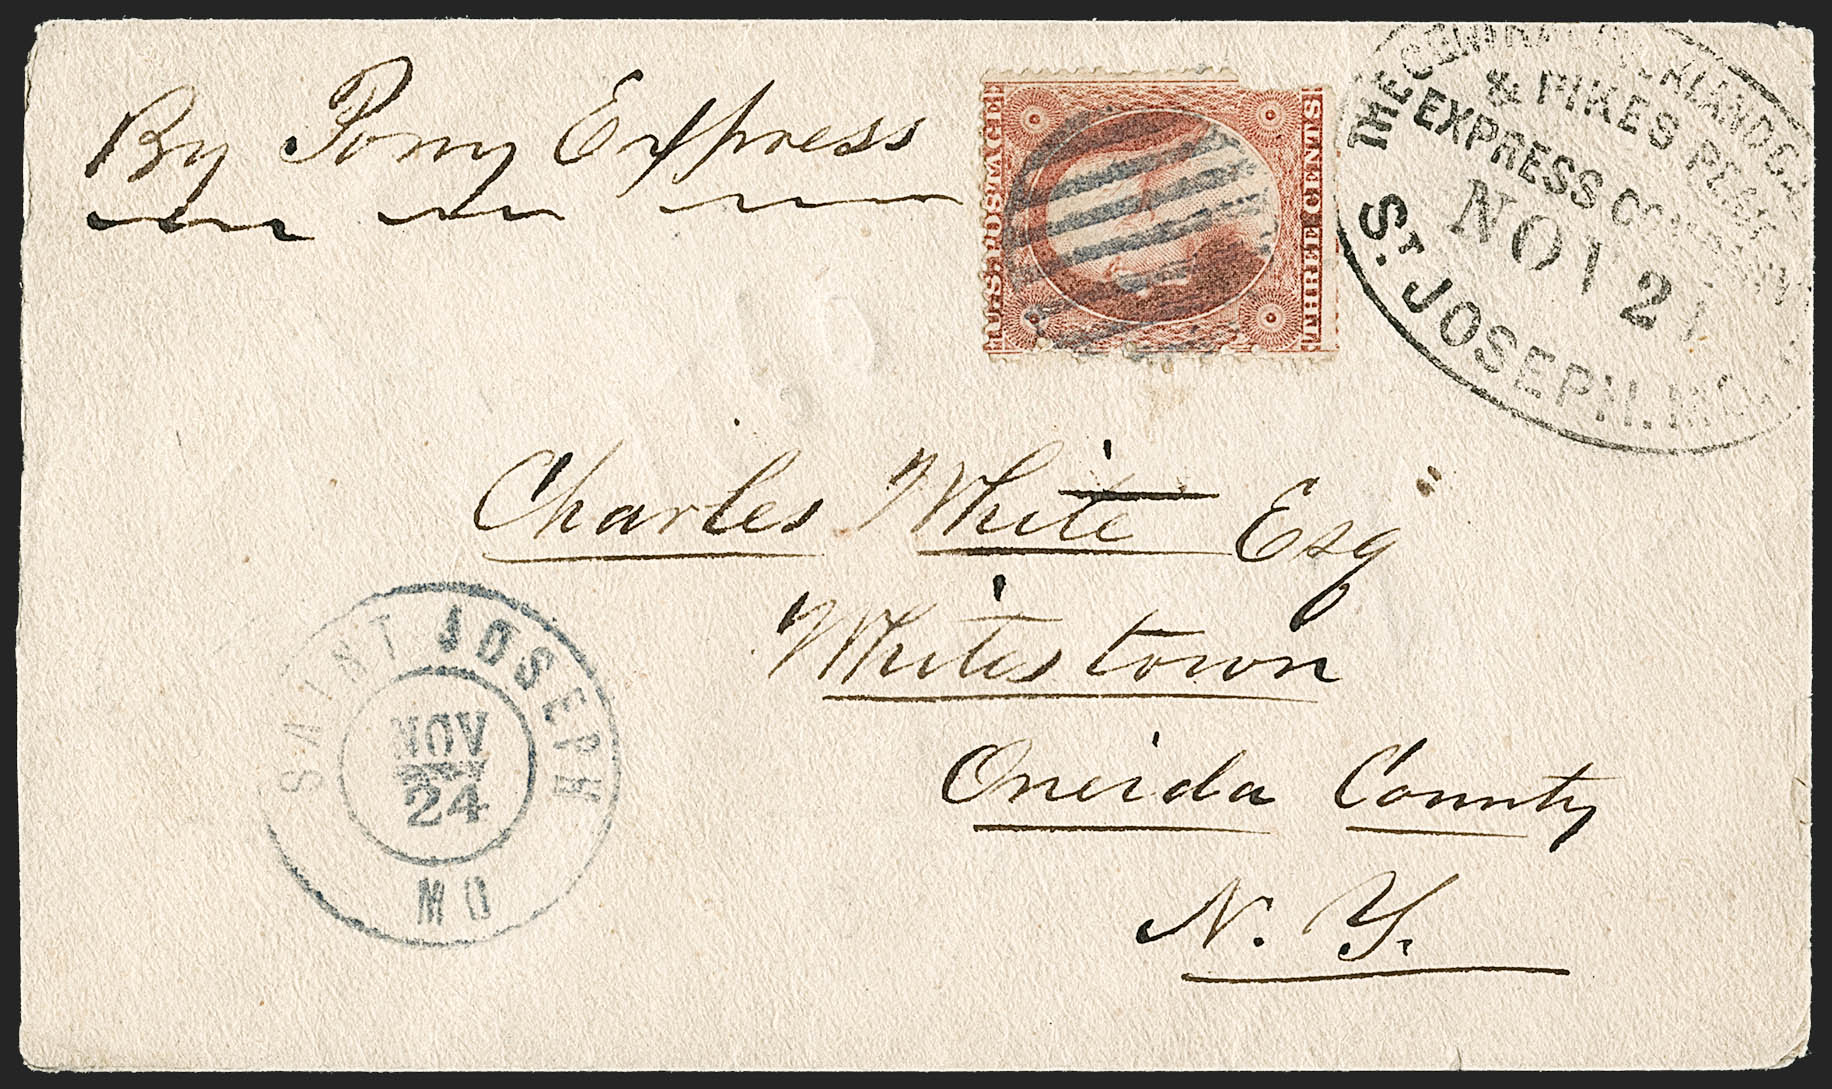 By Pony Express
U.S. POSTAGE
THREE CENTS
THE CENTRAL OVERLAND CAL
& PIKES PEAK
EXPRESS COMPANY
NOV 21
ST. JOSEPH. MO.
Charles White Esq
Whitestown
Oneida County
N. Y.
SAINT JOSEPH
NOV
24
MO